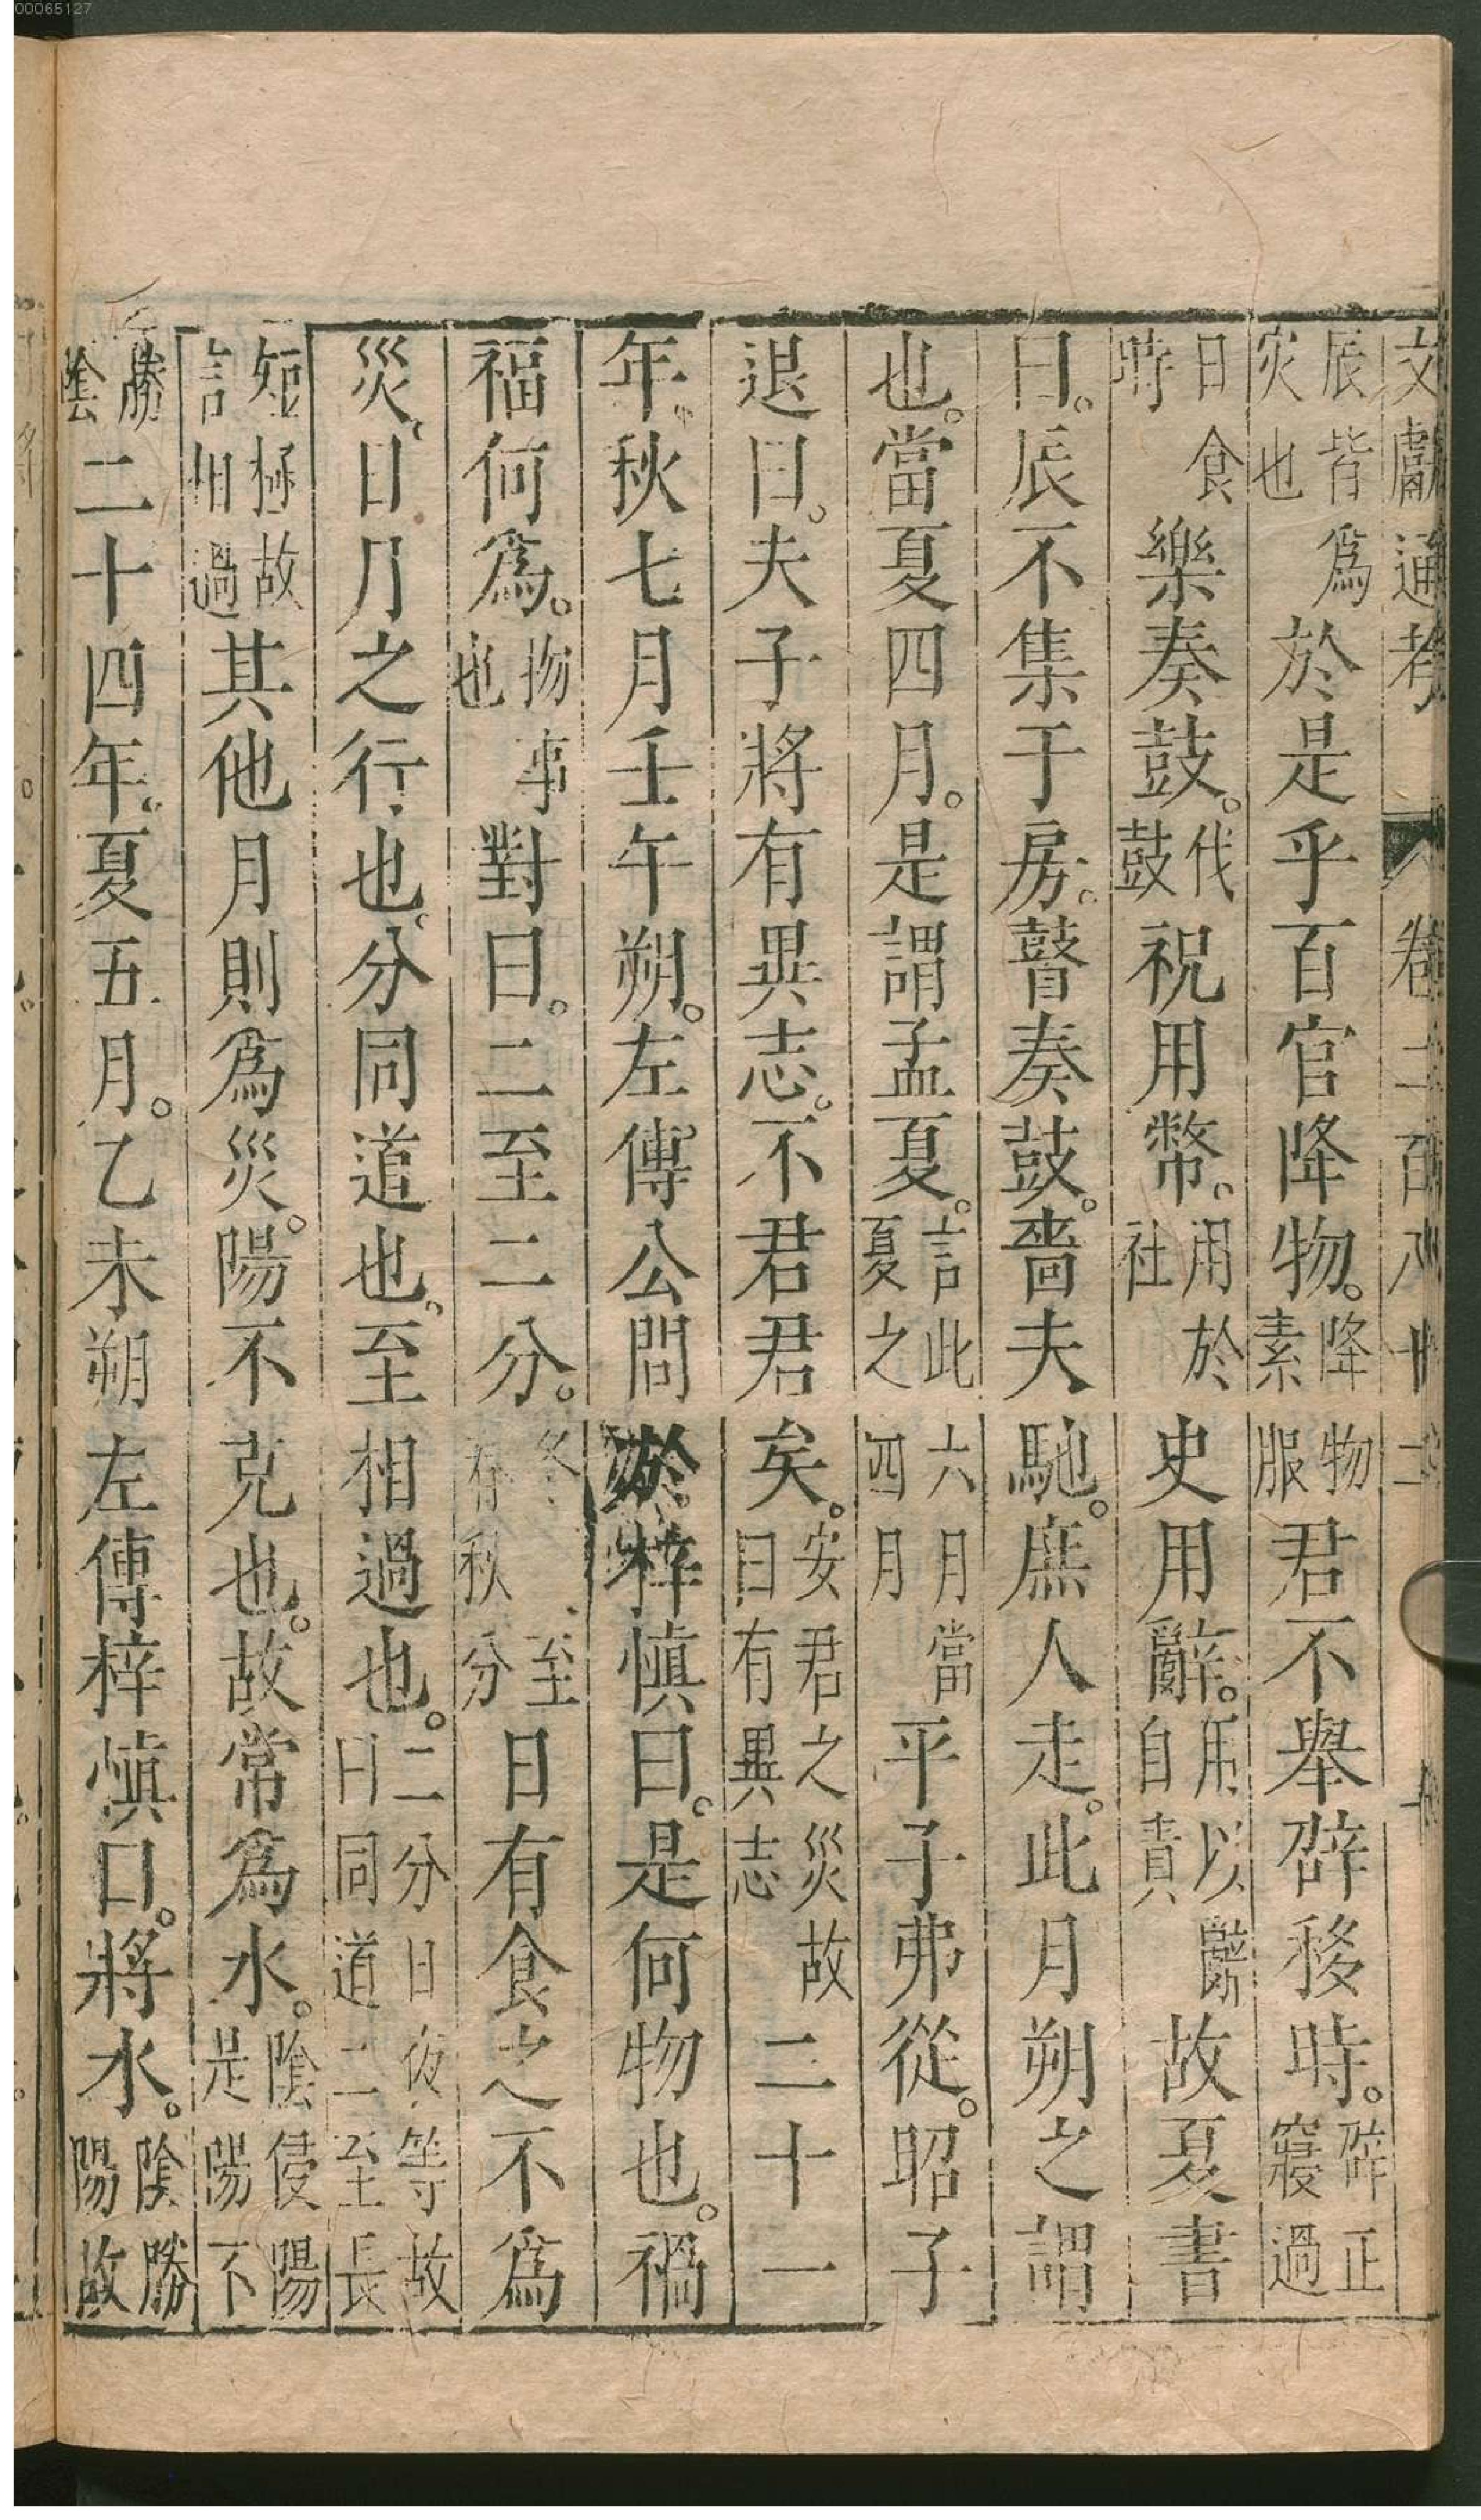 00065127
文獻通考 卷二百八十二
辰皆爲灾也於是乎百官降物。降物素服君不舉辟移時。辟正寢過
日食時樂奏鼓。伐鼓祝用幣。用於社史用辭。用以自責故夏書
曰。辰不集于房。瞽奏鼓。嗇夫馳。庶人走。此月朔之謂
也。當夏四月。是謂孟夏。言此六月當夏之四月平子弗從。昭子
退曰。夫子將有異志。不君君矣。安君之災故曰有異志二十一
年。秋七月壬午朔。左傳公問於梓慎曰。是何物也。禍
福何爲。物事也對曰。二至二分。冬至春秋分日有食之不爲
災。日月之行也。分同道也。至相過也。二分日夜等故曰同道二至長
短極故言相過其他月則爲災。陽不克也。故常爲水。陰侵陽是陽不
勝陰二十四年。夏五月。乙未朔左傳梓慎曰。將水。陰勝陽故